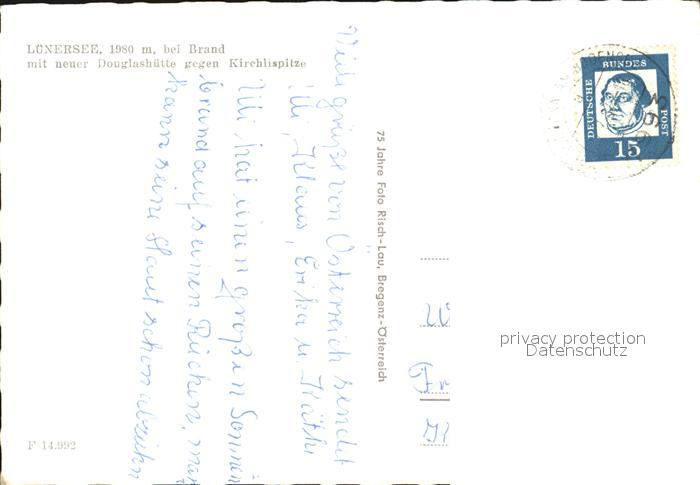 LÜNERSEE, 1980 m, bei Brand
mit neuer Douglashütte gegen Kirchlispitze
Viele grüße von Östereich sendet
Ulli, Klaus, Erika u. Käthi
Ulli hat einen großen Sonnen
brand auf seinen Rücken, man
kann seine Haut schon abziehn
75 Jahre Foto Risch-Lau, Bregenz-Österreich
DEUTSCHE BUNDES POST
15
privacy protection
Datenschutz
F 14.992